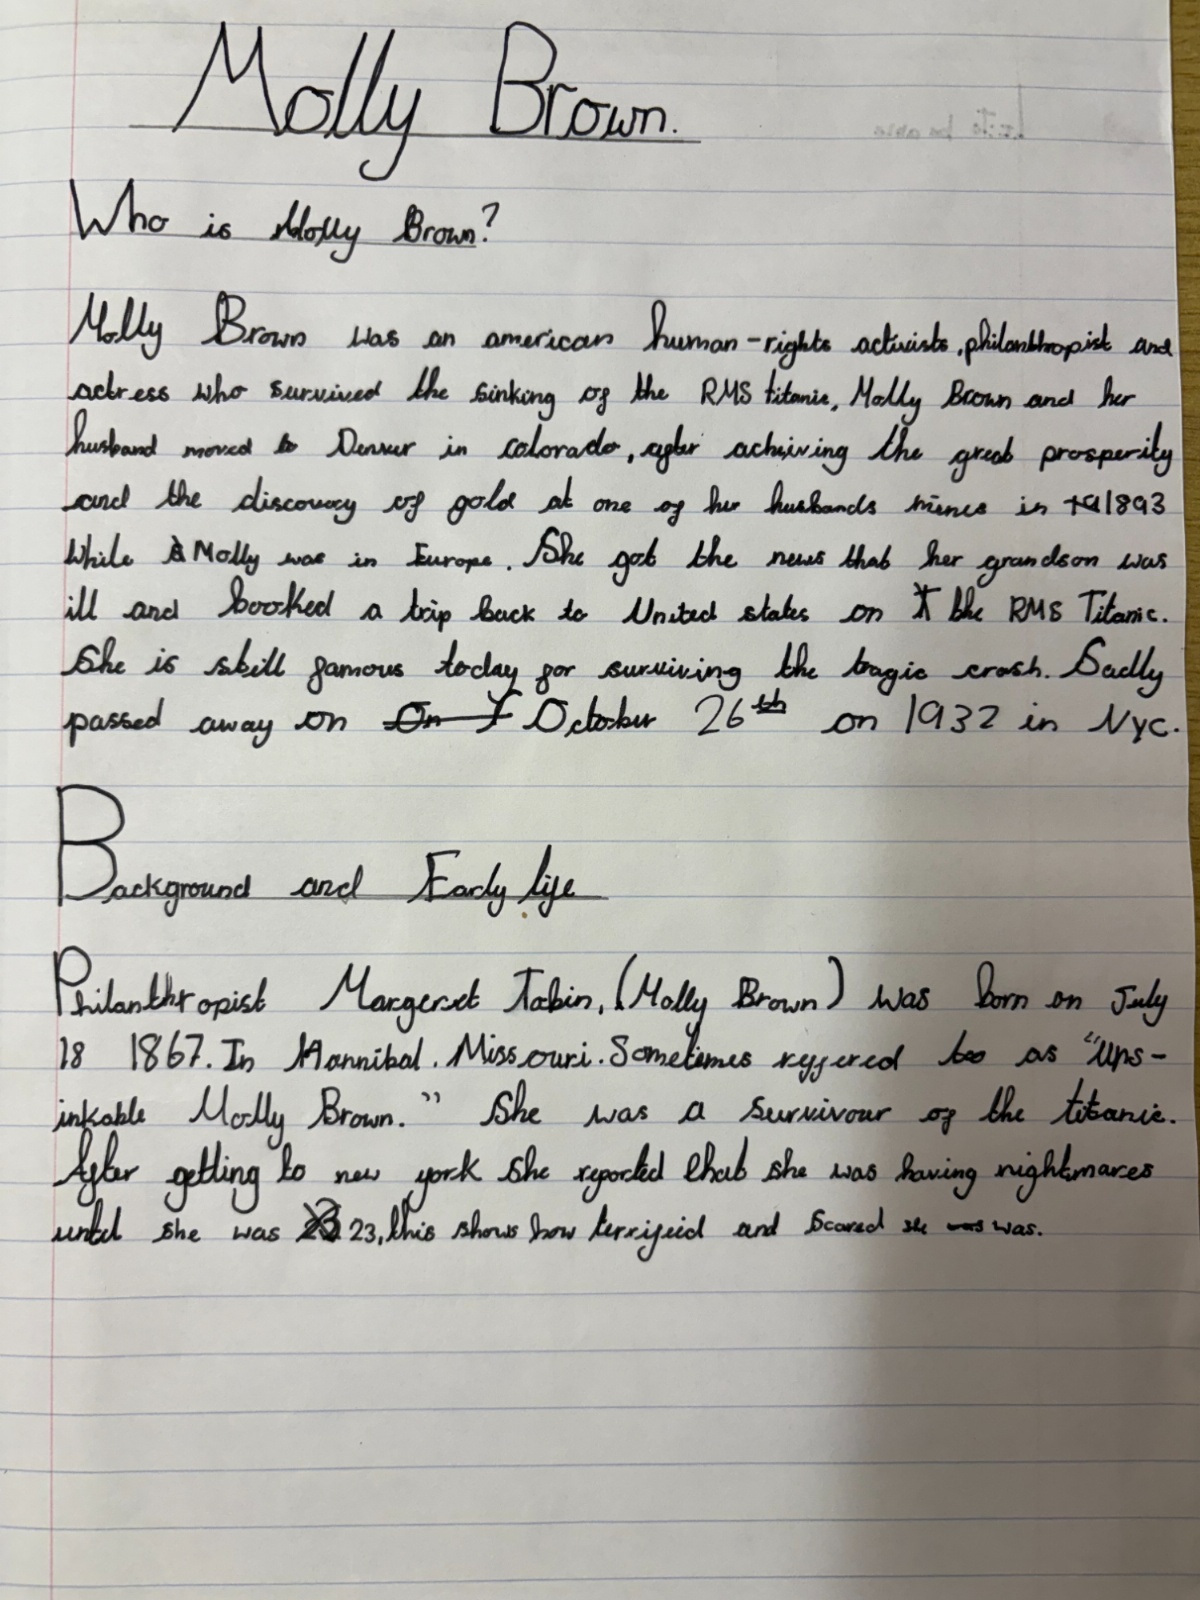 Molly Brown.
Who is Molly Brown?
Molly Brown was an american human-rights activists, philanthropist and
actress who survived the sinking of the RMS titanic, Molly Brown and her
husband moved to Denver in colorado, after achiving the great prosperity
and the discovery of gold at one of her husbands mines in 1893
While Molly was in Europe. She got the news that her grandson was
ill and booked a trip back to United states on the RMS Titanic.
She is still famous today for surviving the tragic crash. Sadly
passed away on October 26th on 1932 in Nyc.
Background and Early life
Philanthropist Margeret Tobin, (Molly Brown) was born on July
18 1867. In Hannibal. Missouri. Sometimes reffered too as “Uns-
inkable Molly Brown.” She was a survivour of the titanic.
After getting to new york she reported that she was having nightmares
until she was 23, this shows how terrifeid and scared she was.